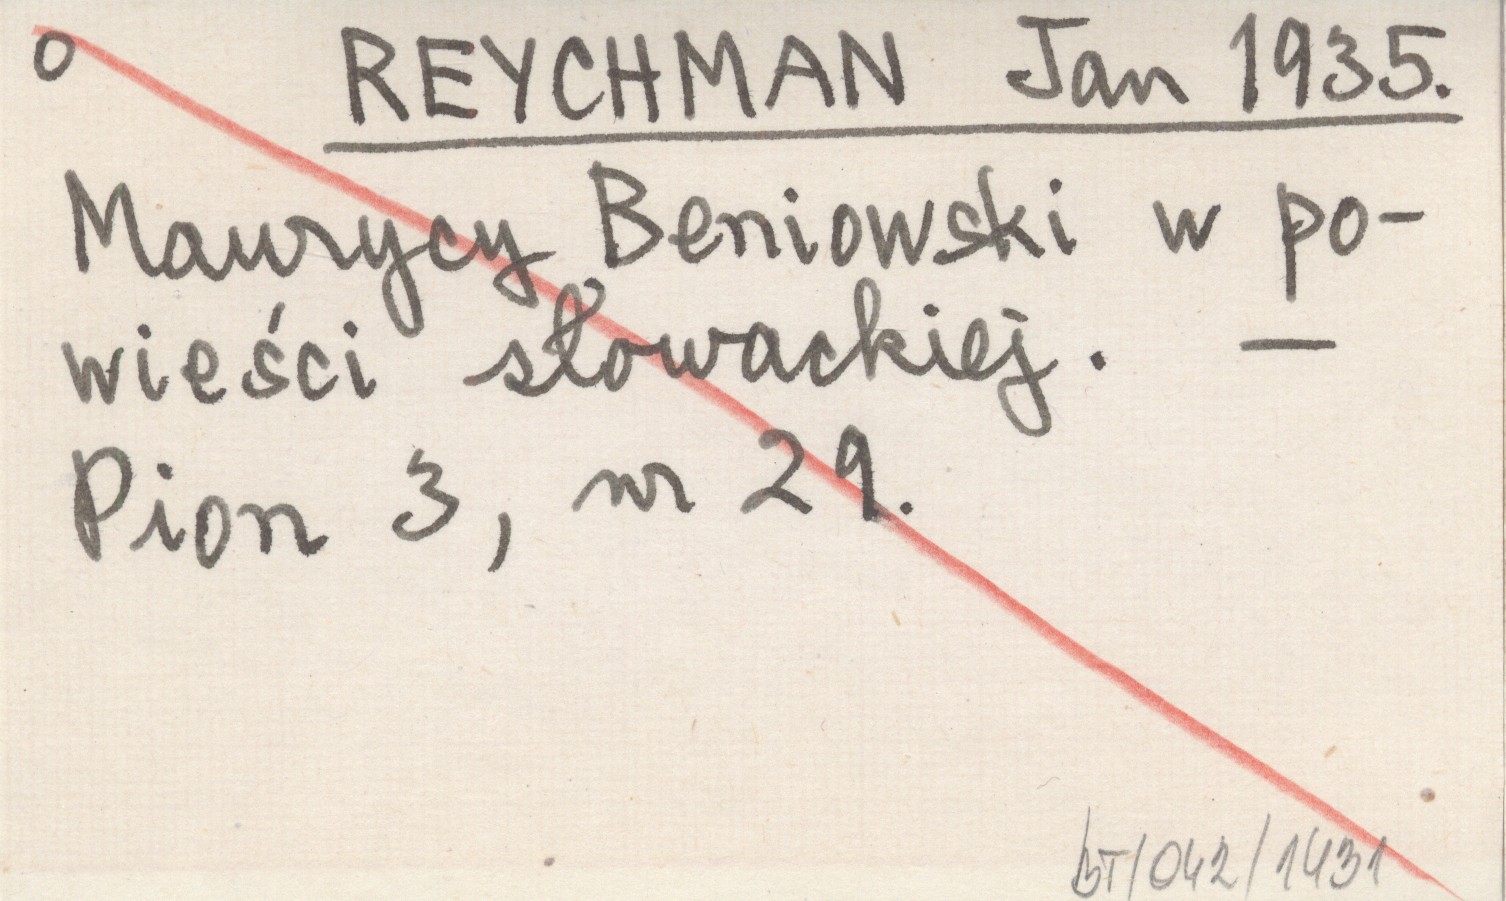 o REYCHMAN Jan 1935.
Maurycy Beniowski w po-
wieści słowackiej. —
Pion 3, nr 29.
BT/042/1431